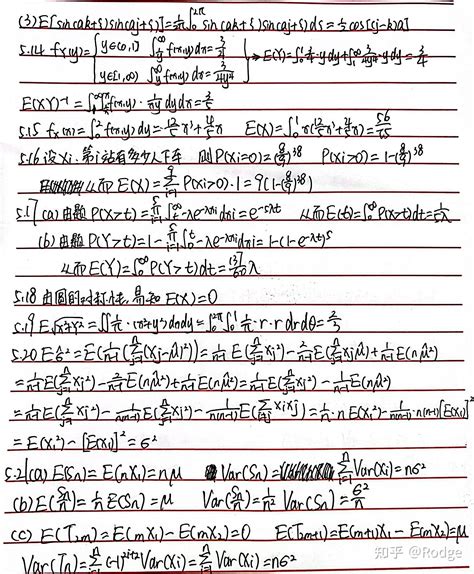 (3) E[sin(ak+s)sin(aj+s)]=1/2π∫₀^2π sin(ak+s)sin(aj+s)ds=½cos[(j-k)a]
5.14 fY(y)= { y∈(0,1] ∫ f(x,y)dx=
{ y∈(1,∞) ∫ f(x,y)dx=
E(Y)=∫₀¹ y dy+∫₁^∞ y dy=3/4
E(XY)⁻¹=∫∫f(x,y)·1/xy dydx=3/5
5.15 fX(x)=∫₀²f(x,y)dy=12/5x²+ E(X)=∫₀¹x( )=
5.16 设Xi:第i站有多少人下车 则P(Xi=0)=(8/9)³⁸ P(Xi>0)=1-(8/9)³⁸
从而E(X)=Σ P(Xi>0)·1=9(1-(8/9)³⁸)
5.17 (a)由题P(X>t)=Π∫λe^-λxi dxi=e^-5λt 从而E(t)=∫₀^∞P(X>t)dt=1/5λ
(b)由题P(Y>t)=1-Π∫₀^t λe^-λxi dxi=1-(1-e^-λt)⁵
从而E(Y)=∫₀^∞P(Y>t)dt=137/60λ
5.18 由圆的对称性,易知E(X)=0
5.19 E√x²+y²=∫∫1/π·(x²+y²)dxdy=∫₀^2π∫₀¹1/π·r·r drdθ=2/3
5.20 Eσ̂²=E(1/n-1(Σ(Xj-μ̂)²))=1/n-1E(ΣXj²)-2/n-1E(ΣXjμ̂)+1/n-1E(nμ̂²)
=1/n-1E(ΣXj²)-2/n-1E(nμ̂²)+1/n-1E(nμ̂²)=1/n-1E(ΣXj²)-1/n-1E(nμ̂²)
=1/n-1E(ΣXj²)-1/n(n-1)E(ΣXj²)-1/n(n-1)E(ΣXiXj)=1/n·nE(X₁²)-1/n(n-1)·n(n-1)[E(X₁)]²
=E(X₁²)-[E(X₁)]²=σ²
5.21 (a) E(Sn)=E(nX₁)=nμ Var(Sn)=ΣVar(Xi)=nσ²
(b) E(Sn/n)=1/nE(Sn)=μ Var(Sn/n)=1/n²Var(Sn)=σ²/n
(c) E(T2m)=E(mX₁)-E(mX₂)=0 E(T2m+1)=E(m+1)X₁-E(mX₂)=μ
Var(Tn)=Σ(-1)^2i+2Var(Xi)=ΣVar(Xi)=nσ²
知乎 @Rodge